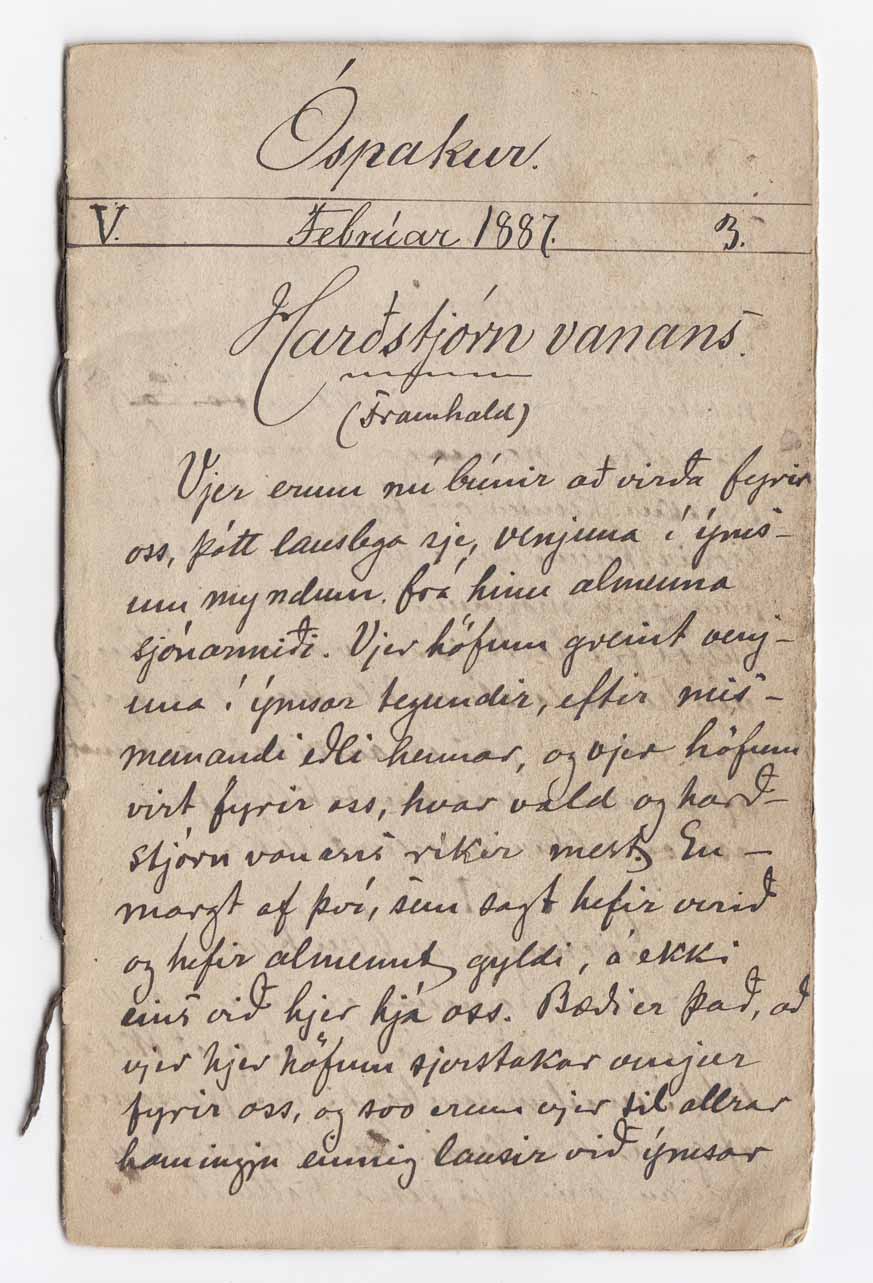 Óspakur.
V. Febrúar 1887. 3.
Harðstjórn vanans.
(Framhald)
Vjer erum nú búnir að virða fyrir
oss, þótt lauslega sje, venjuna í ýms-
um myndum, frá hinu almenna
sjónarmiði. Vjer höfum greint venj-
una í ýmsar tegundir, eftir mis-
munandi eðli hennar, og vjer höfum
virt fyrir oss, hvar vald og harð-
stjórn vanans ríkir mest. En -
margt af því, sem sagt hefir verið
og hefir almennt gyldi, á ekki
eins við hjer hjá oss. Bæði er það, að
vjer hjer höfum sjerstakar venjur
fyrir oss, og svo erum vjer til allrar
hamingju einnig lausir við ýmsar